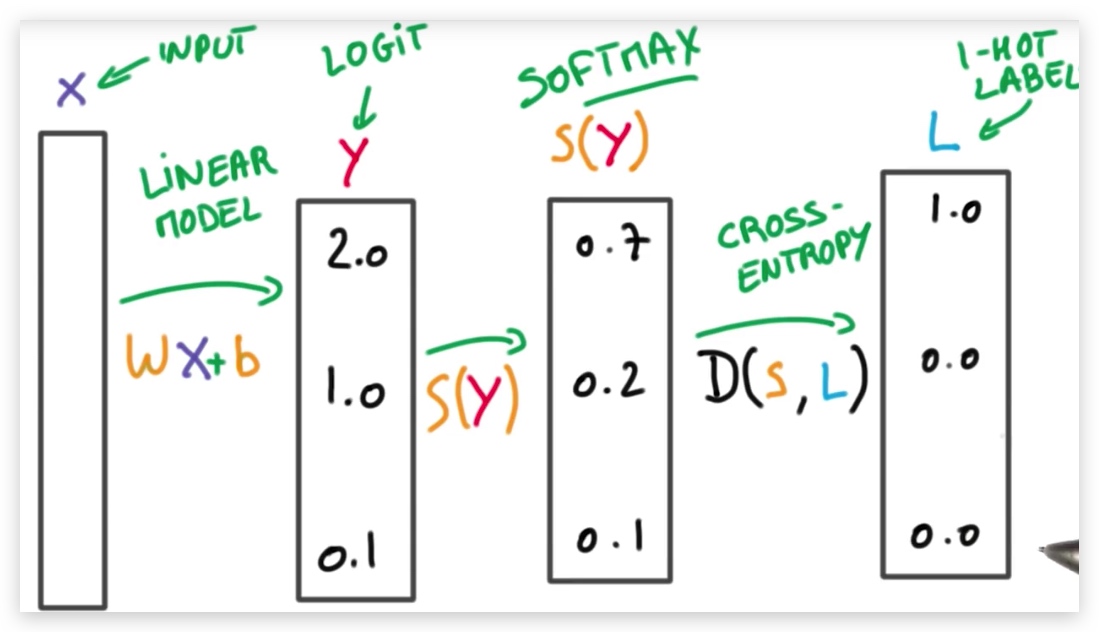 X
INPUT
LINEAR
MODEL
WX+b
LOGIT
Y
2.0
1.0
0.1
S(Y)
SOFTMAX
S(Y)
0.7
0.2
0.1
CROSS-
ENTROPY
D(S,L)
1-HOT
LABEL
L
1.0
0.0
0.0